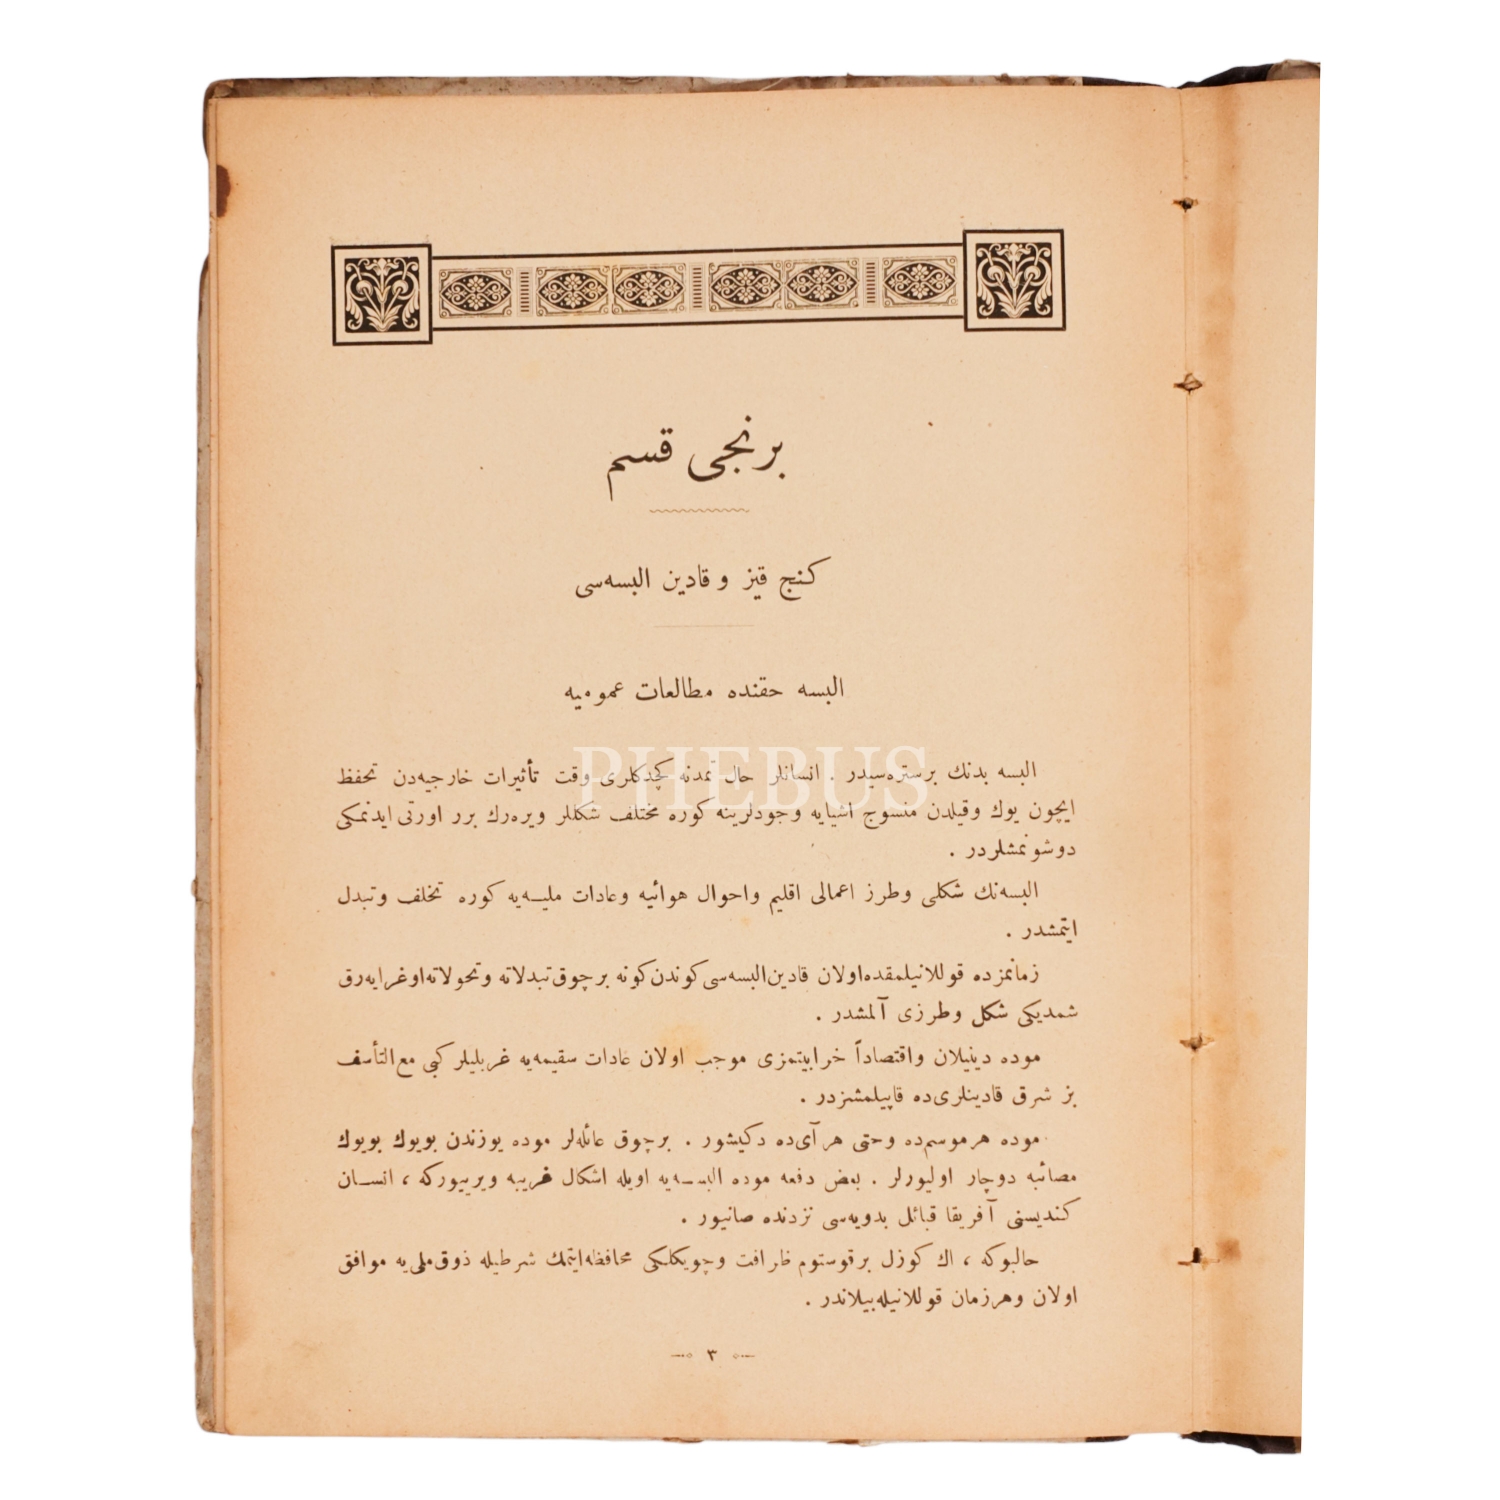 برنجی قسم
کنج قیز و قادین البسه‌سی
البسه حقنده مطالعات عمومیه
البسه بدنك برستره‌سیدر . انسانلر حال تمدنه کچدکلری وقت تأثیرات خارجیه‌دن تحفظ
ایچون یوك وقیلدن منسوج اشیایه وجودلرینه کوره مختلف شکللر ویره‌رك برر اورتی ایدنمکی
دوشونمشلردر .
البسه‌نك شکلی وطرز اعمالی اقلیم واحوال هوائیه وعادات ملیــه‌یه کوره تخلف وتبدل
ایتمشدر .
زمانمزده قوللانیلمقده‌اولان قادین‌البسه‌سی‌کوندن‌کونه برچوق‌تبدلاته وتحولاته‌اوغرایه‌رق
شمدیکی شکل وطرزی آلمشدر .
موده دینیلان واقتصاداً خرابیتمزی موجب اولان عادات سقیمه‌یه غربلیلر کبی مع‌التأسف
بز شرق قادینلری‌ده قاپیلمشزدر .
موده هرموسم‌ده وحتی هرآی‌ده دکیشور . برچوق عائله‌لر موده یوزندن بویوك بویوك
مصائبه دوچار اولیورلر . بعض دفعه موده البســه‌یه اویله اشکال غریبه ویرییورکه ، انســان
کندیسنی آفریقا قبائل بدویه‌سی نزدنده صانیور .
حالبوکه ، اك کوزل برقوستوم ظرافت وچویکلکی محافظه‌ایتمك شرطیله ذوق‌ملی‌یه موافق
اولان وهرزمان قوللانیله‌بیلاندر .
— ٣ —
PHEBUS